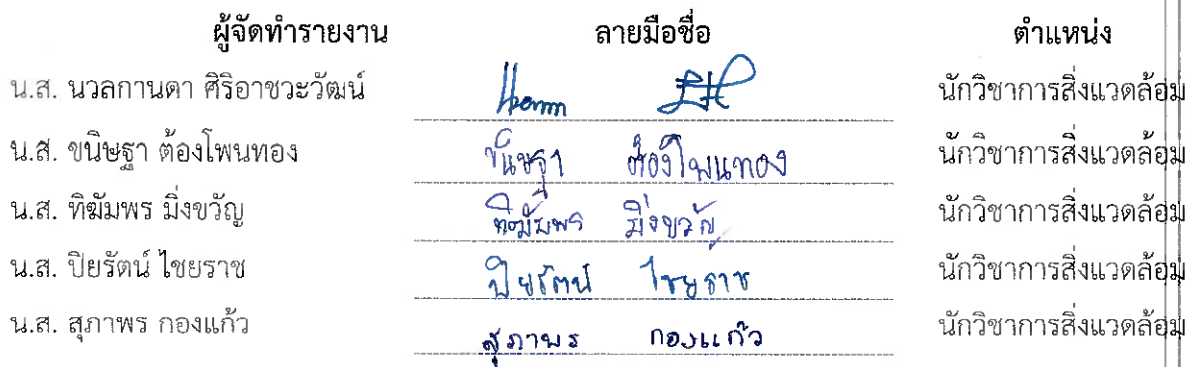 ผู้จัดทำรายงาน ลายมือชื่อ ตำแหน่ง
น.ส. นวลกานดา ศิริอาชวะวัฒน์ นักวิชาการสิ่งแวดล้อม
น.ส. ขนิษฐา ต้องโพนทอง ขนิษฐา ต้องโพนทอง นักวิชาการสิ่งแวดล้อม
น.ส. ทิฆัมพร มิ่งขวัญ ทิฆัมพร มิ่งขวัญ นักวิชาการสิ่งแวดล้อม
น.ส. ปิยรัตน์ ไชยราช ปิยรัตน์ ไชยราช นักวิชาการสิ่งแวดล้อม
น.ส. สุภาพร กองแก้ว สุภาพร กองแก้ว นักวิชาการสิ่งแวดล้อม